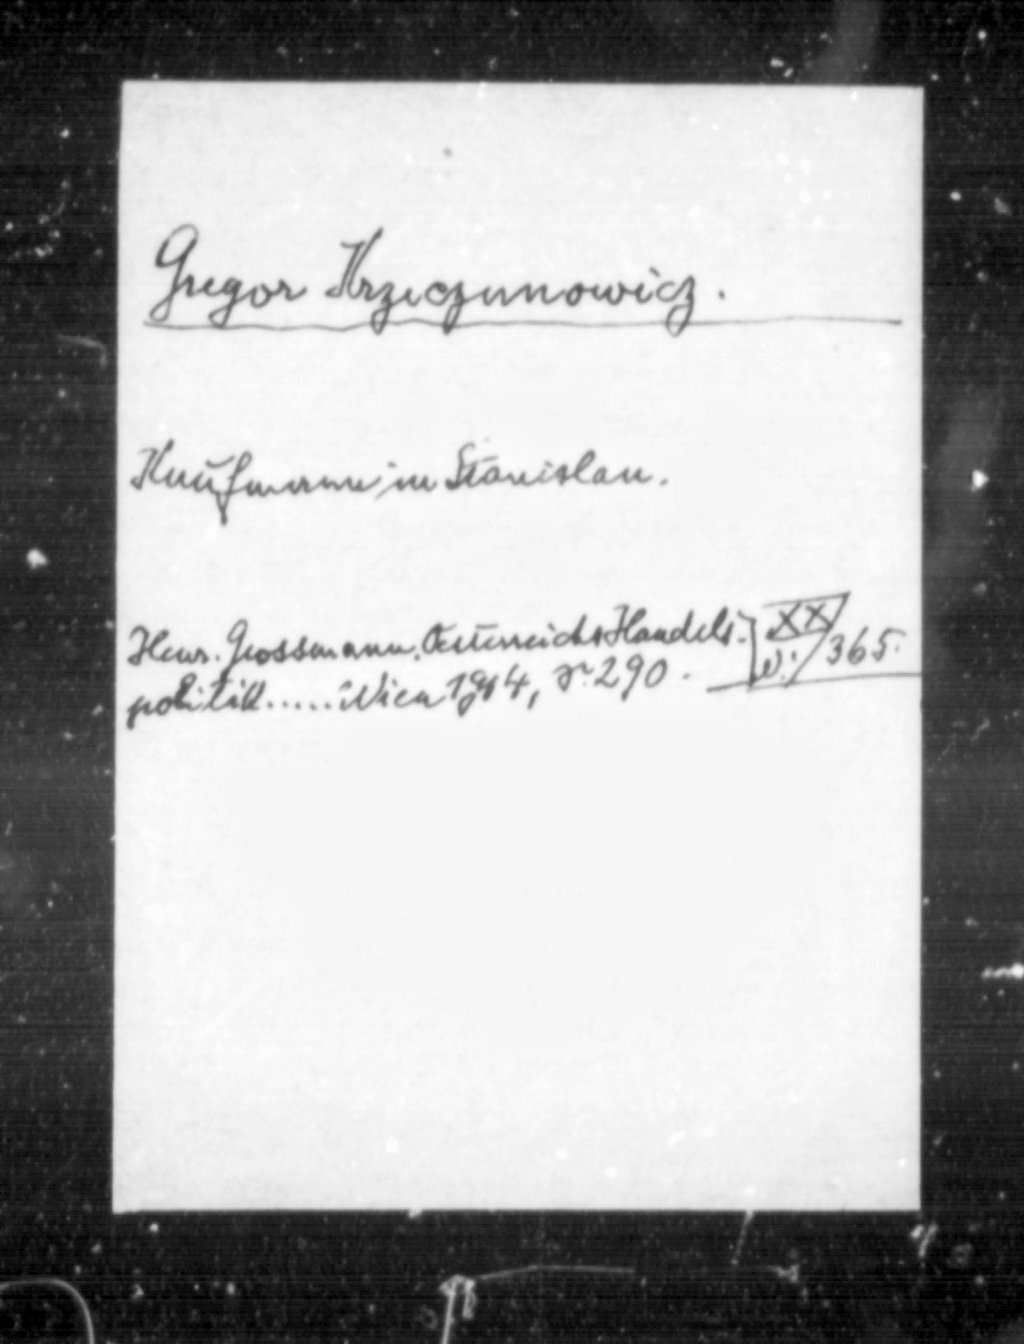 Gregor Krzeczunowicz.
Kaufmann in Stanislau.
Henr. Grossmann. Oesterreichs Handels-
politik..... Wien 1914, S. 290.
XX/ 365.